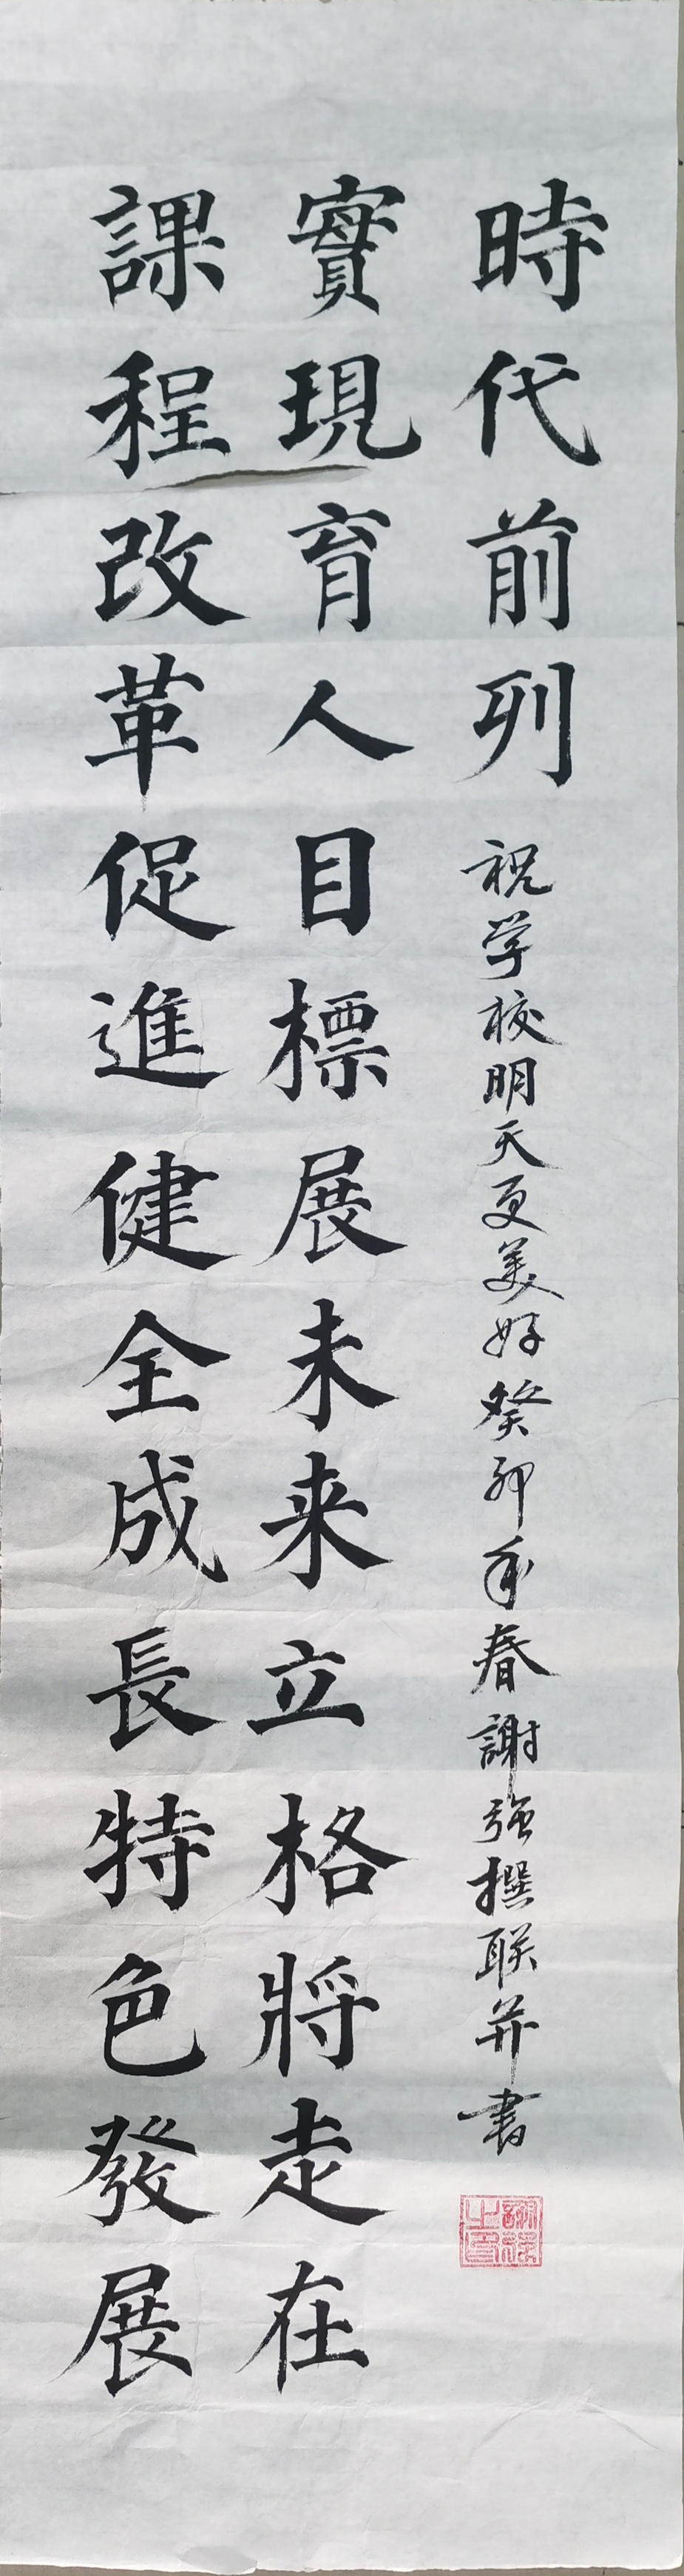 課程改革促進健全成長特色發展
實現育人目標展未来立格將走在
時代前列
祝学校明天更美好癸卯年春謝強撰联并書
謝強之印